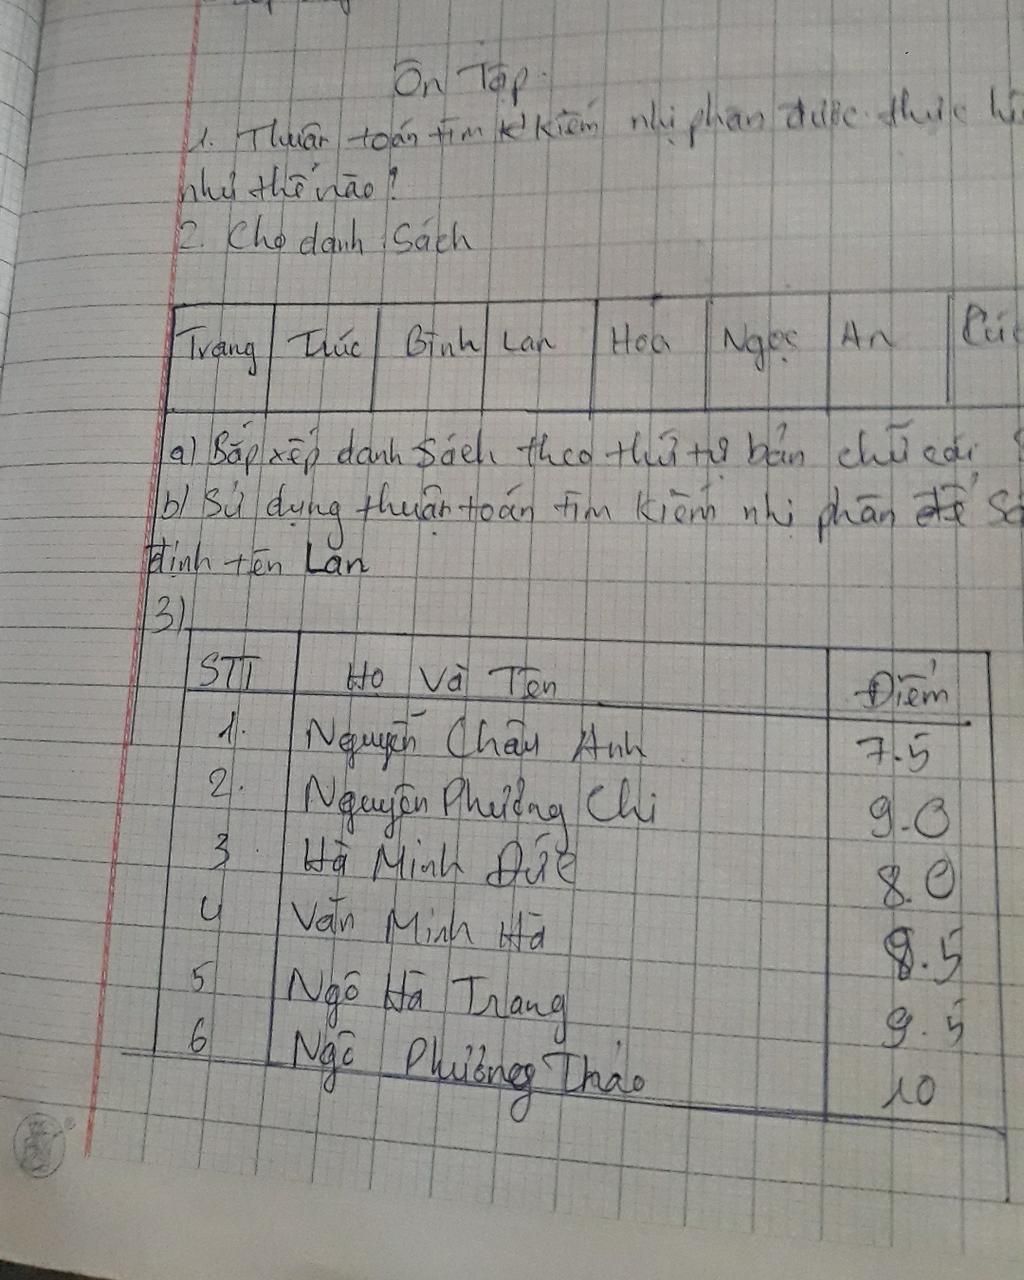 Ôn Tập.
1. Thuận toán tìm kiếm nhị phân được thực
như thế nào?
2. Cho danh sách
Trang Trúc Bình Lan Hoa Ngọc An Cúc
a) Sắp xếp danh sách theo thứ tự bản chữ cái
b) Sử dụng thuận toán tìm kiếm nhị phân để
định tên Lan
3)
STT Họ Và Tên Điểm
1. Nguyễn Châu Anh 7.5
2. Nguyễn Phương Chi 9.0
3 Hà Minh Đức 8.0
4 Văn Minh Hà 8.5
5 Ngô Hà Trang 9.5
6 Ngô Phương Thảo 10